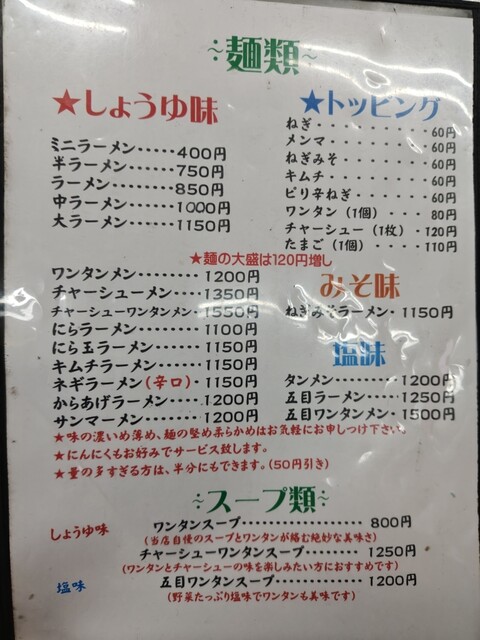 ～麺類～
★しょうゆ味
ミニラーメン・・・・・400円
半ラーメン・・・・・・750円
ラーメン・・・・・・・850円
中ラーメン・・・・・・1000円
大ラーメン・・・・・・1150円
★トッピング
ねぎ・・・・・・・・・60円
メンマ・・・・・・・・60円
ねぎみそ・・・・・・・60円
キムチ・・・・・・・・60円
ピリ辛ねぎ・・・・・・60円
ワンタン（1個）・・・・80円
チャーシュー（1枚）・120円
たまご（1個）・・・・110円
★麺の大盛は120円増し
ワンタンメン・・・・・・・・1200円
チャーシューメン・・・・1350円
チャーシューワンタンメン・1550円
にらラーメン・・・・・・・・1100円
にら玉ラーメン・・・・・・1150円
キムチラーメン・・・・・・1150円
ネギラーメン（辛口）・1150円
からあげラーメン・・・・1200円
サンマーメン・・・・・・・・1200円
みそ味
ねぎみそラーメン・1150円
塩味
タンメン・・・・・・・・1200円
五目ラーメン・・・・1250円
五目ワンタンメン・1500円
★味の濃いめ薄め、麺の堅め柔らかめはお気軽にお申しつけ下さい。
★にんにくもお好みでサービス致します。
★量の多すぎる方は、半分にもできます。（50円引き）
～スープ類～
しょうゆ味
ワンタンスープ・・・・・・・・・・・・・・・・・800円
（当店自慢のスープとワンタンが絡む絶妙な美味さ）
チャーシューワンタンスープ・・・・・・・・1250円
（ワンタンとチャーシューの味を楽しみたい方におすすめです）
塩味
五目ワンタンスープ・・・・・・・・・・・・・1200円
（野菜たっぷり塩味でワンタンも美味です）